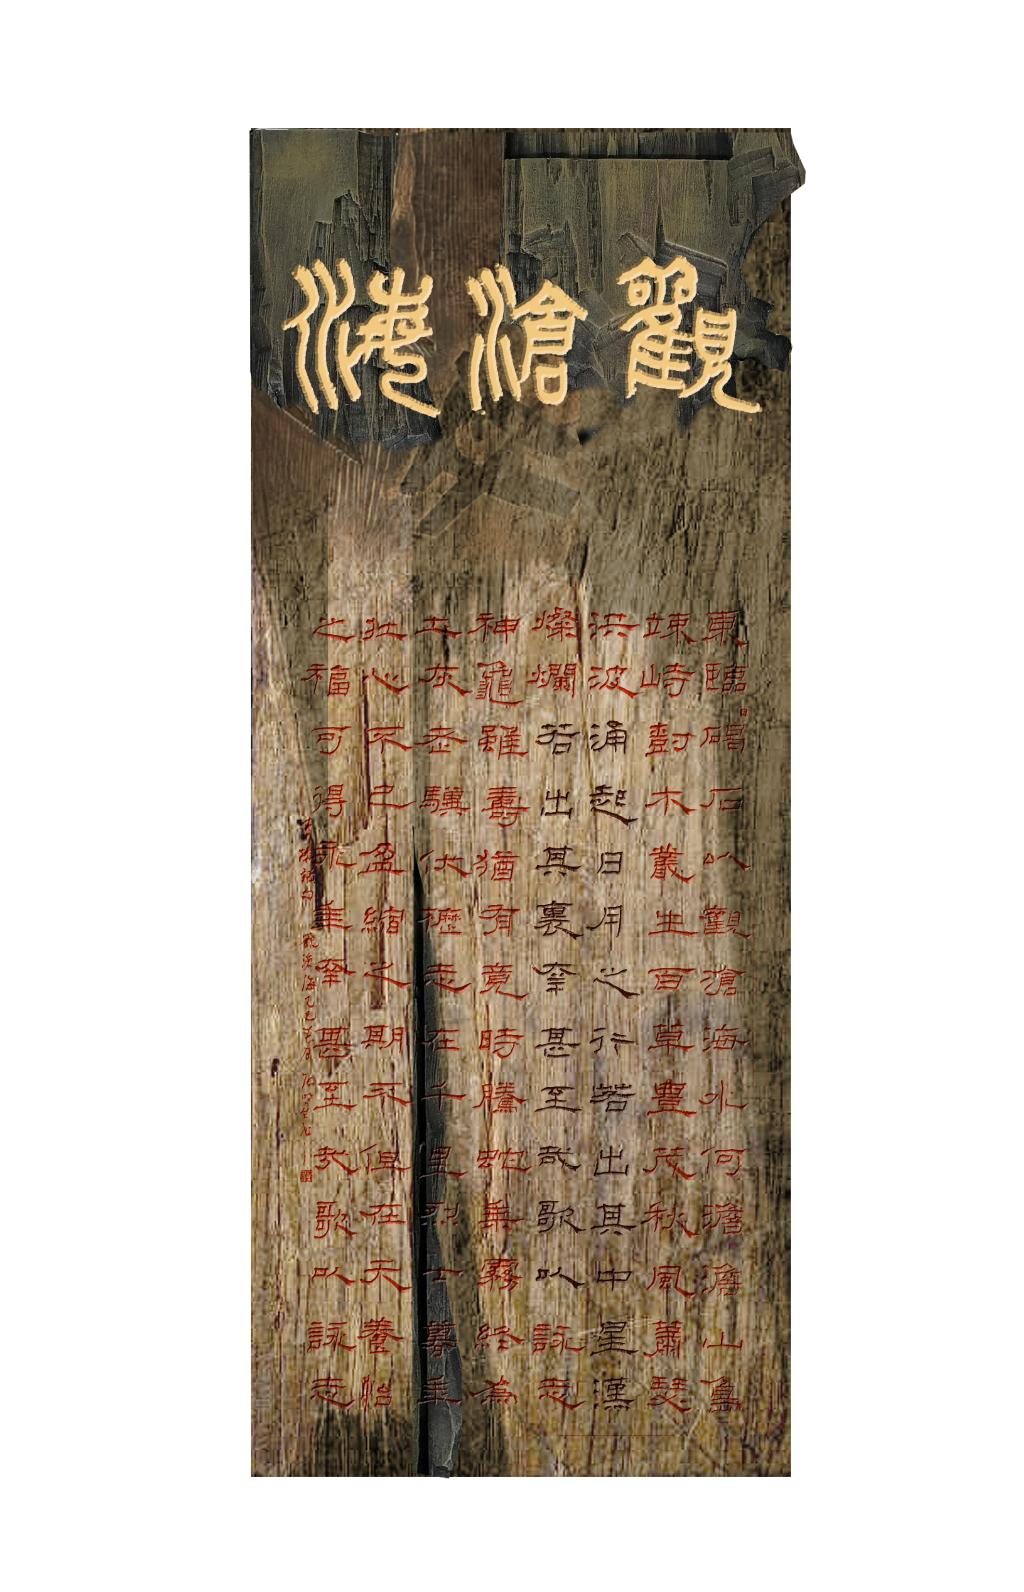 觀滄海
東臨碣石以觀滄海水何澹澹山島
竦峙樹木叢生百草豐茂秋風蕭瑟
洪波涌起日月之行若出其中星漢
燦爛若出其裏幸甚至哉歌以詠志
神龜雖壽猶有竟時騰蛇乘霧終為
土灰老驥伏櫪志在千里烈士暮年
壯心不已盈縮之期不但在天養怡
之福可得永年幸甚至哉歌以詠志
觀滄海乙巳